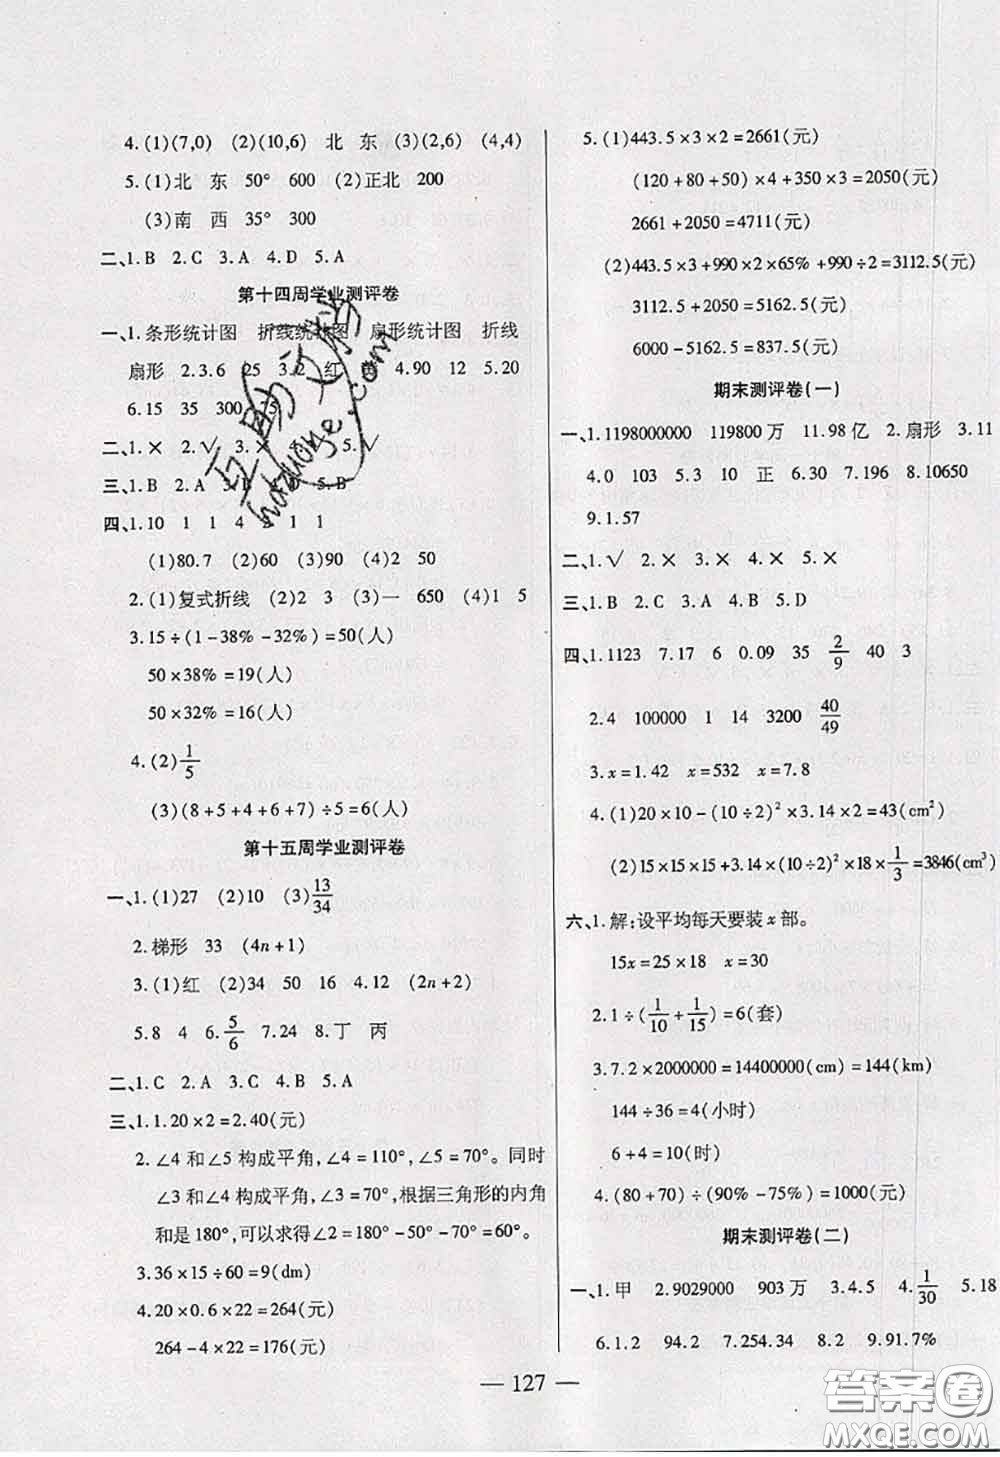 4.(1)(7,0) (2)(10,6) 北 东 (3)(2,6) (4,4)
5.(1)北 东 50° 600 (2)正北 200
(3)南 西 35° 300
二、1.B 2.C 3.A 4.D 5.A
第十四周学业测评卷
一、1.条形统计图 折线统计图 扇形统计图 折线
扇形 2.3.6 25 3.2 红 黄 4.90 12 5.20
6.15 35 300 75
二、1.× 2.√ 3.× 4.× 5.√
三、1.B 2.A 3.B 4.D 5.B
四、1.10 1 1 4 2 1 1
(1)80.7 (2)60 (3)90 (4)2 50
2.(1)复式折线 (2)2 3 (3)一 650 (4)1 5
3.15÷(1-38%-32%)=50(人)
50×38%=19(人)
50×32%=16(人)
4.(2)1/5
(3)(8+5+4+6+7)÷5=6(人)
第十五周学业测评卷
一、1.(1)27 (2)10 (3)13/34
2.梯形 33 (4n+1)
3.(1)红 (2)34 50 16 4.12 (2n+2)
5.8 4 6.5/6 7.24 8.丁 丙
二、1.C 2.A 3.C 4.B 5.A
三、1.1.20×2=2.40(元)
2.∠4和∠5构成平角,∠4=110°,∠5=70°。同时
∠3和∠4构成平角,∠3=70°,根据三角形的内角
和是180°,可以求得∠2=180°-50°-70°=60°。
3.36×15÷60=9(dm)
4.20×0.6×22=264(元)
264-4×22=176(元)
5.(1)443.5×3×2=2661(元)
(120+80+50)×4+350×3=2050(元)
2661+2050=4711(元)
(2)443.5×4+990×2×65%+990÷2=3112.5(元)
3112.5+2050=5162.5(元)
6000-5162.5=837.5(元)
期末测评卷(一)
一、1.1198000000 119800万 11.98亿 2.扇形 3.11
4.0 103 5.3 10 正 6.30 7.196 8.10650
9.1.57
二、1.√ 2.× 3.× 4.× 5.×
三、1.B 2.C 3.A 4.B 5.D
四、1.1123 7.17 6 0.09 35 2/9 40 3
2.4 100000 1 14 3200 40/49
3.x=1.42 x=532 x=7.8
4.(1)20×10-(10÷2)²×3.14×2=43(cm²)
(2)15×15×15+3.14×(10÷2)²×18×1/3=3846(cm³)
六、1.解:设平均每天要装x部。
15x=25×18 x=30
2.1÷(1/10+1/15)=6(套)
3.7.2×2000000=14400000(cm)=144(km)
144÷36=4(小时)
6+4=10(时)
4.(80+70)÷(90%-75%)=1000(元)
期末测评卷(二)
一、1.甲 2.9029000 903万 3.4.5 4.1/30 5.18
6.1.2 94.2 7.254.34 8.2 9.91.7%
— 127 —
答案卷
MXQE.COM